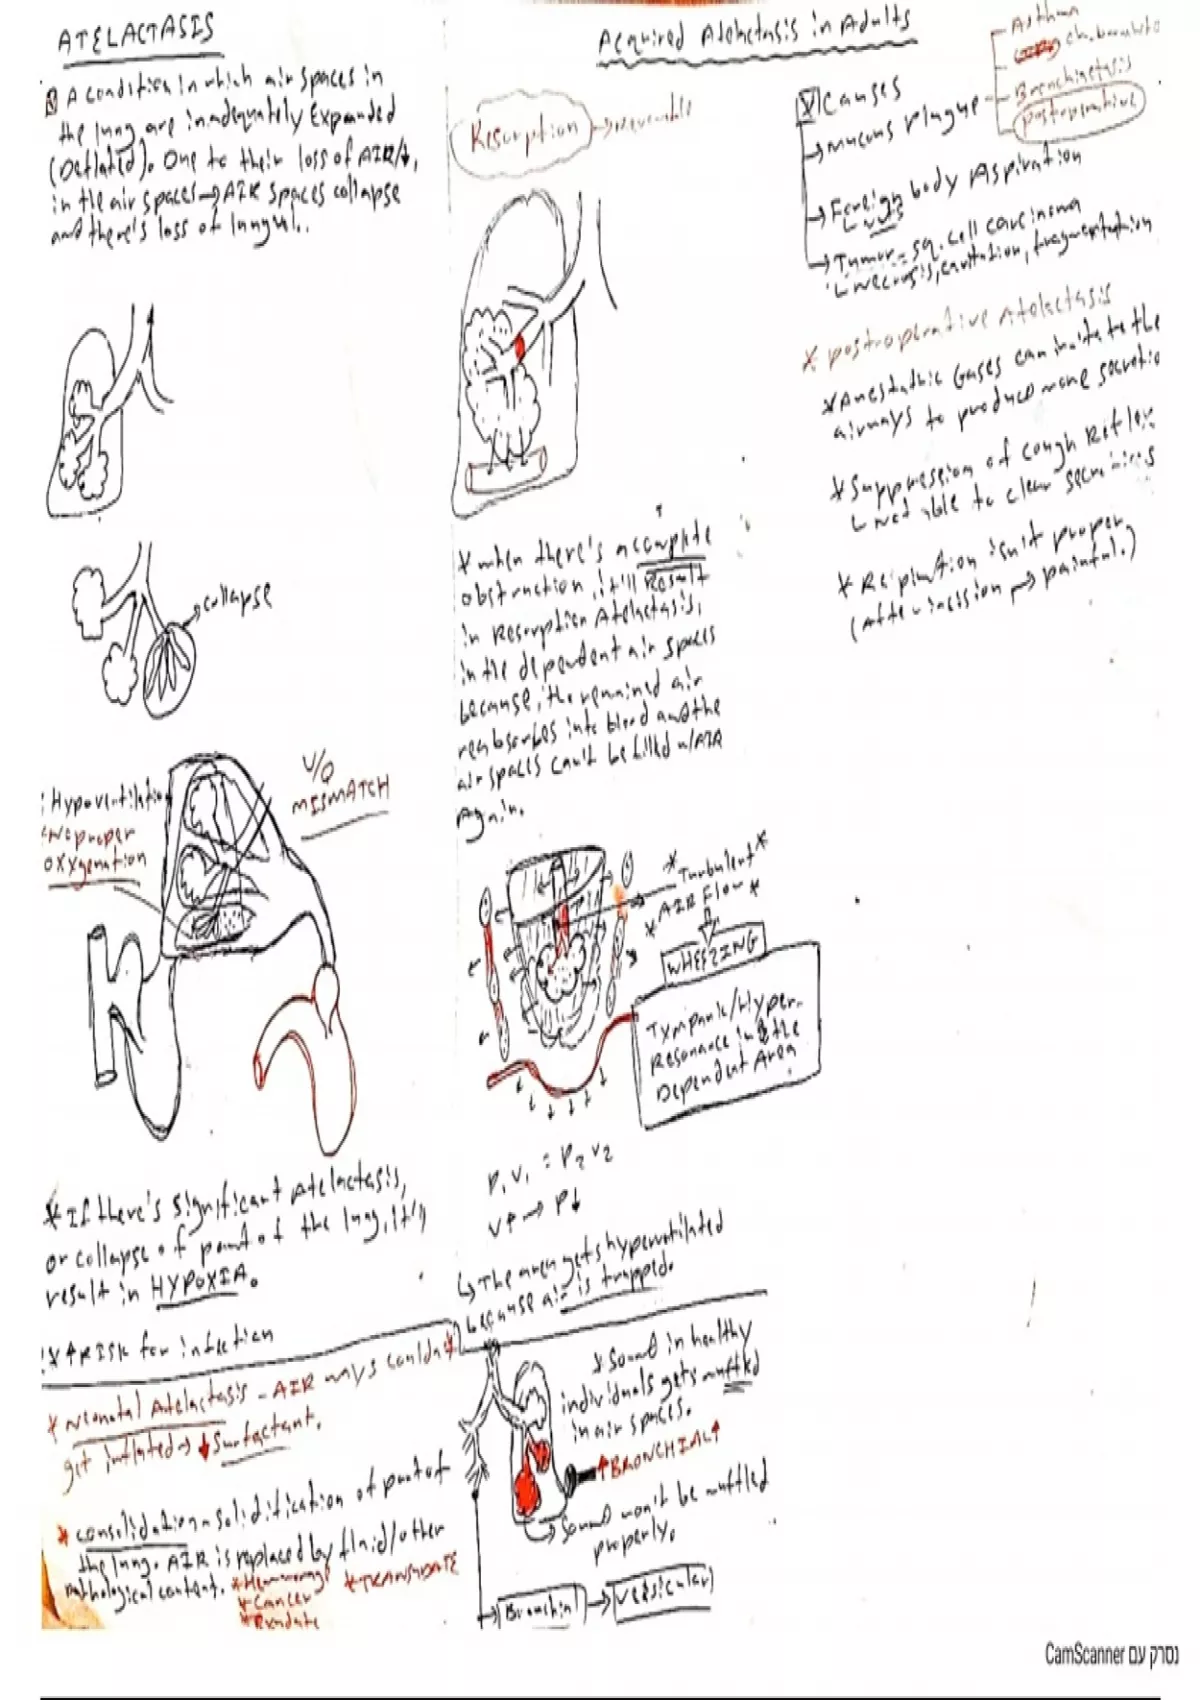 ATELACTASIS
A condition in which air spaces in
the lung are inadequately Expanded
(Deflated). Due to their loss of AIR/↓,
in the air spaces → AIR spaces collapse
and there's loss of lung vol..
→ collapse
V/Q
MISMATCH
Hypoventilation
No proper
oxygenation
* If there's significant Atelactasis,
or collapse of part of the lung, it'll
result in HYPOXIA.
* ↑ RISK for infection
* Neonatal Atelactasis - AIR ways couldn't
get inflated → ↓ Surfactant.
* consolidation - solidification of part of
the lung. AIR is replaced by fluid/other
pathological content.
* Hemorrage
* TRANSUDATE
* Cancer
* Exudate
Acquired Atelectasis in Adults
Resorption → reversible
* when there's a complete
obstruction, it'll Result
in Resorption Atelactasis,
in the dependent air spaces
because, the remained air
reabsorbes into blood and the
air spaces can't be filled w/AIR
Again.
* Turbulent *
* AIR Flow *
WHEEZING
Tympanic/Hyper-
Resonance in the
Dependent Area
P₁V₁ = P₂V₂
V↑ → P↓
↳ The area gets hyperventilated
because air is trapped.
* Sound in healthy
individuals gets muffled
in air spaces.
↑ BRONCHIAL ↑
→ Sound won't be muffled
properly.
Bronchial → Vesicular
Causes
→ Mucous Plague
Asthma
ch. bronchitis
Bronchiectasis
postoperative
→ Foreign body Aspiration
↳ nuts
→ Tumor = sq. cell carcinoma
↳ necrosis, cavitation, fragmentation
* postoperative Atelactasis
* Anesthetic Gases can irritate the
airways to produce more secretio
* Suppression of cough Reflex
↳ not able to clear secretions
* Respiration isn't proper,
(after incission → painful.)
CamScanner נסרק עם